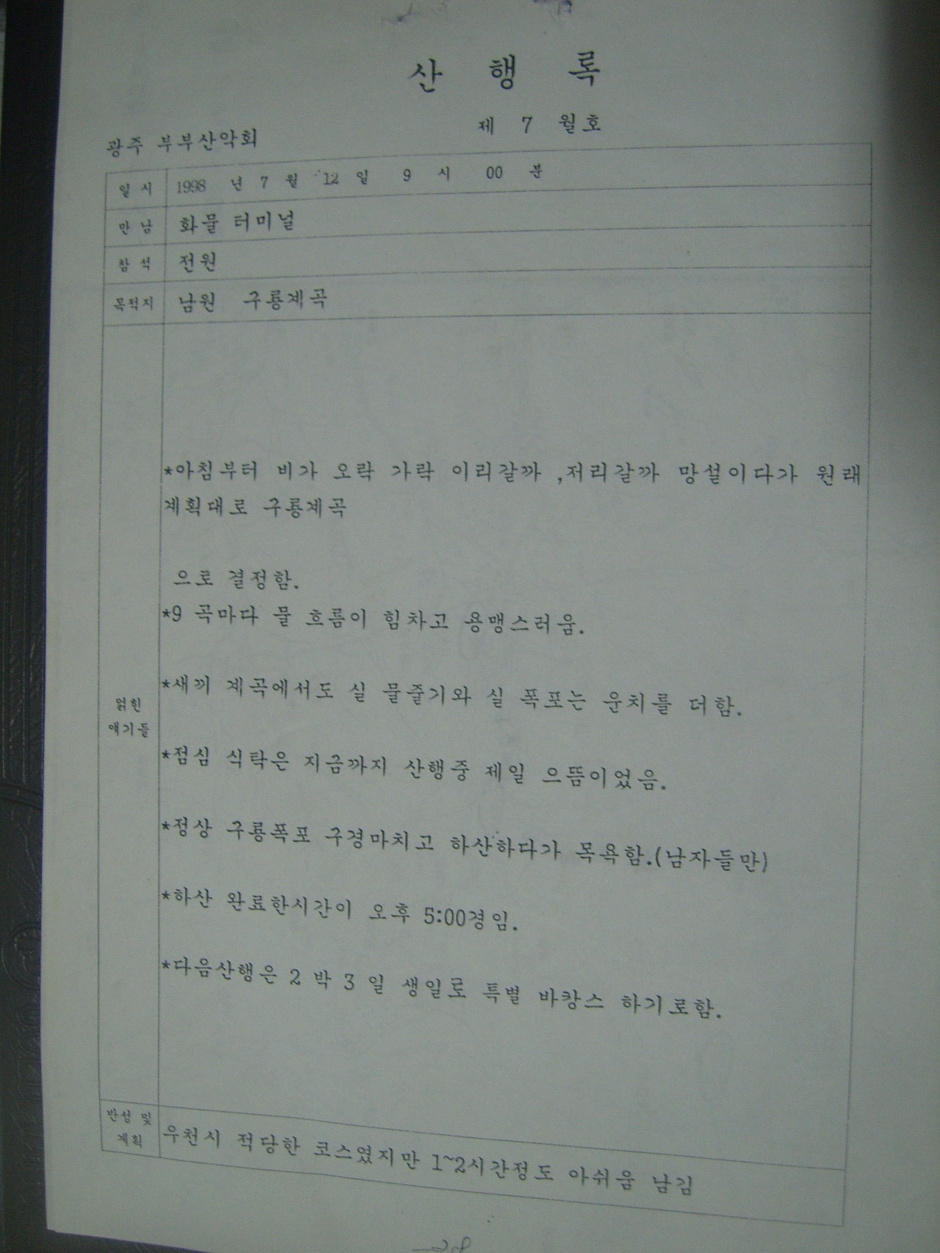 산 행 록
제 7 월호
광주 부부산악회
일 시 1998 년 7 월 12 일 9 시 00 분
만 남 화물 터미널
참 석 전원
목적지 남원 구룡계곡
*아침부터 비가 오락 가락 이리갈까 ,저리갈까 망설이다가 원래
계획대로 구룡계곡
으로 결정함.
*9 곡마다 물 흐름이 힘차고 용맹스러움.
*새끼 계곡에서도 실 물줄기와 실 폭포는 운치를 더함.
얽힌
얘기들
*점심 식탁은 지금까지 산행중 제일 으뜸이었음.
*정상 구룡폭포 구경마치고 하산하다가 목욕함.(남자들만)
*하산 완료한시간이 오후 5:00경임.
*다음산행은 2 박 3 일 생일로 특별 바캉스 하기로함.
반성 및
계획
우천시 적당한 코스였지만 1~2시간정도 아쉬움 남김